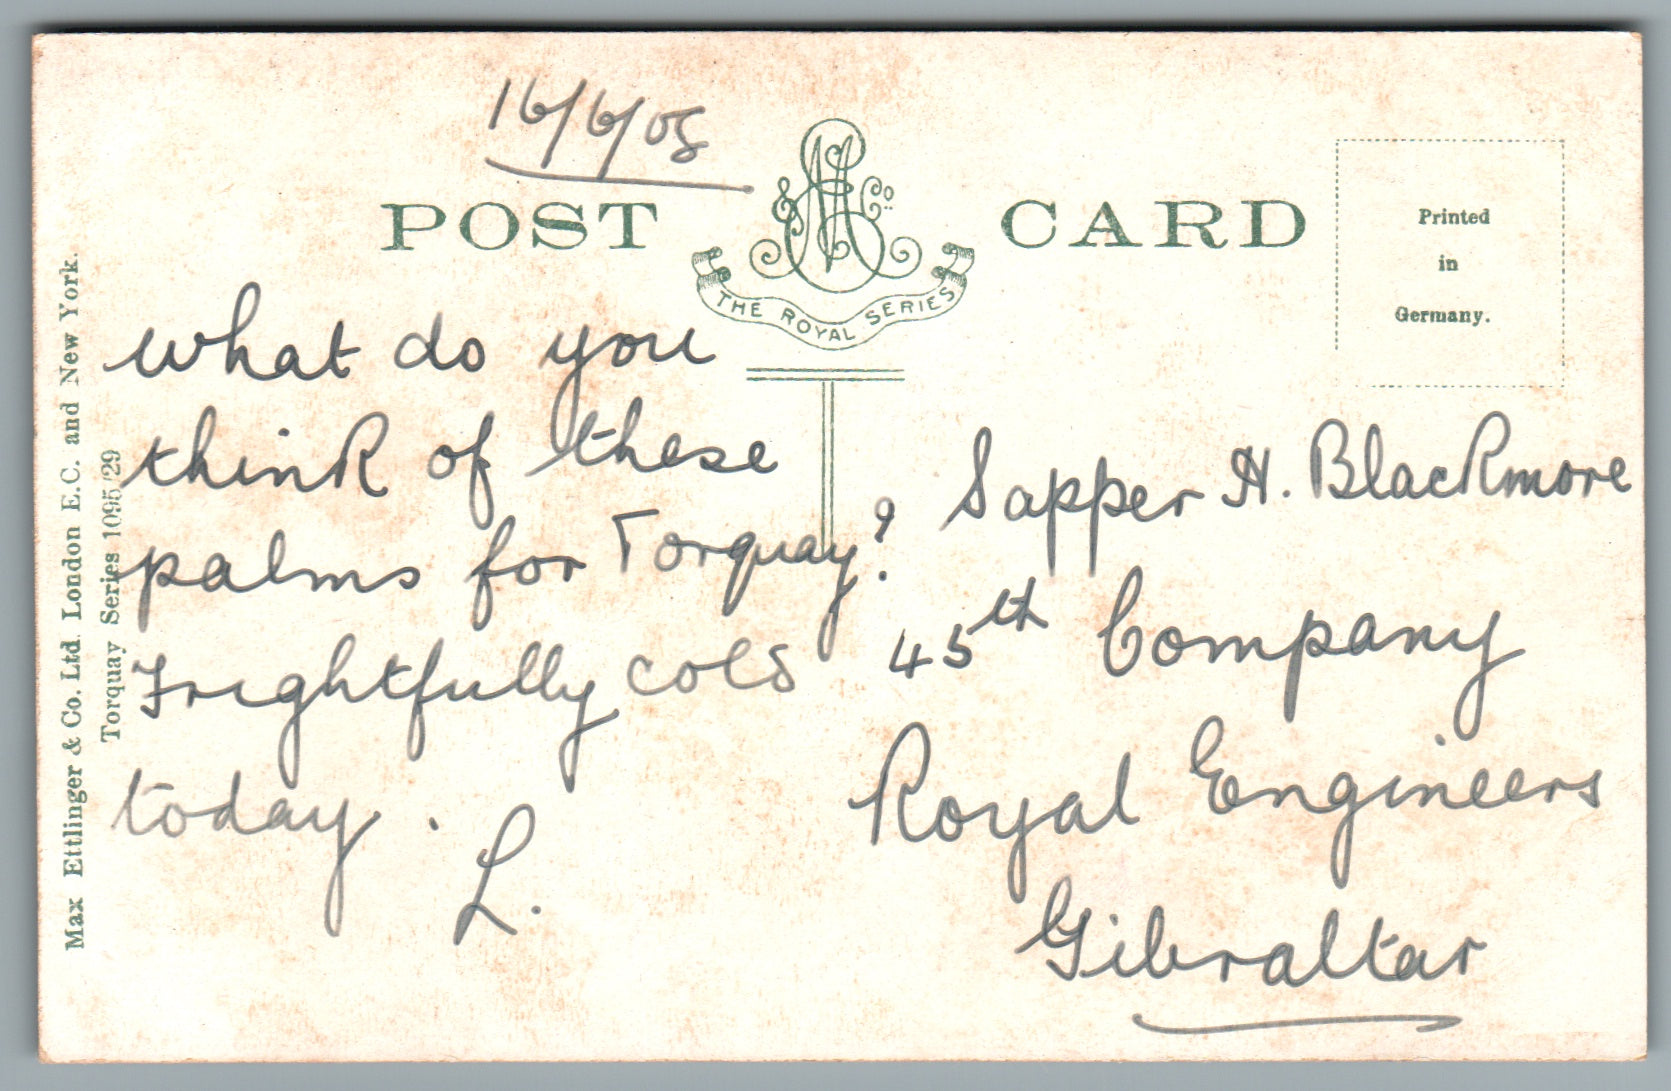 16/6/05
POST CARD
& Co.
THE ROYAL SERIES
Printed
in
Germany.
Max Ettlinger & Co. Ltd. London E.C. and New York.
Torquay Series 1095/29
what do you
think of these
palms for Torquay?
Frightfully cold
today.
L.
Sapper H. Blackmore
45th Company
Royal Engineers
Gibraltar